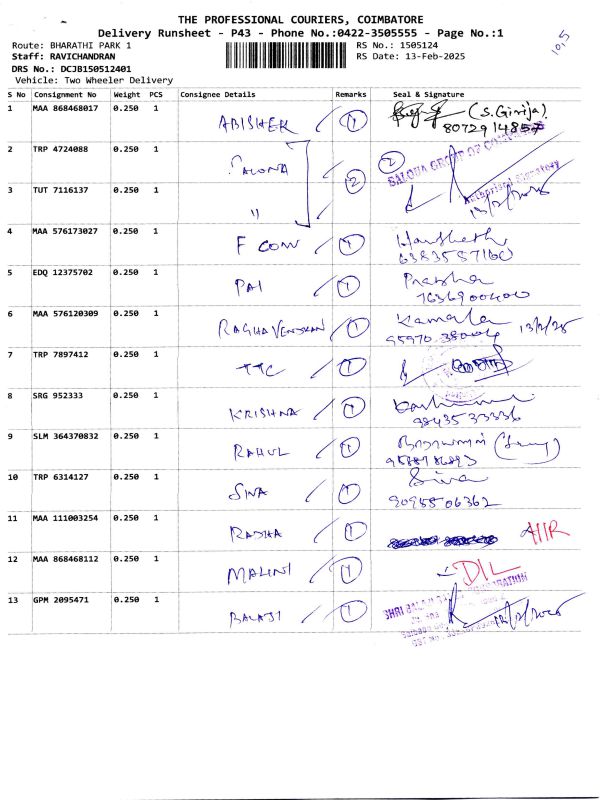 THE PROFESSIONAL COURIERS, COIMBATORE
Delivery Runsheet - P43 - Phone No.:0422-3505555 - Page No.:1
10,5
Route: BHARATHI PARK 1 RS No.: 1505124
Staff: RAVICHANDRAN RS Date: 13-Feb-2025
DRS No.: DCJB150512401
Vehicle: Two Wheeler Delivery
S No Consignment No Weight PCS Consignee Details Remarks Seal & Signature
1 MAA 868468017 0.250 1 ABISHEK 1 (S.Girija)
2 TRP 4724088 0.250 1 Salona 2 2
3 TUT 7116137 0.250 1 " Authorised Signatory
13/2/2025
4 MAA 576173027 0.250 1 F CONV 1
6383587160
5 EDQ 12375702 0.250 1 PAI 1
7636900400
6 MAA 576120309 0.250 1 RAGHAVENDRAN 1 Kamala 13/2/25
7 TRP 7897412 0.250 1 TTC 1
8 SRG 952333 0.250 1 KRISHNA 1
9843533336
9 SLM 364370832 0.250 1 RAHUL 1
10 TRP 6314127 0.250 1 SIVA 1 Siva
9095506362
11 MAA 111003254 0.250 1 RADHA 1
12 MAA 868468112 0.250 1 MALINI 1 DIL
13 GPM 2095471 0.250 1 BALAJI 1